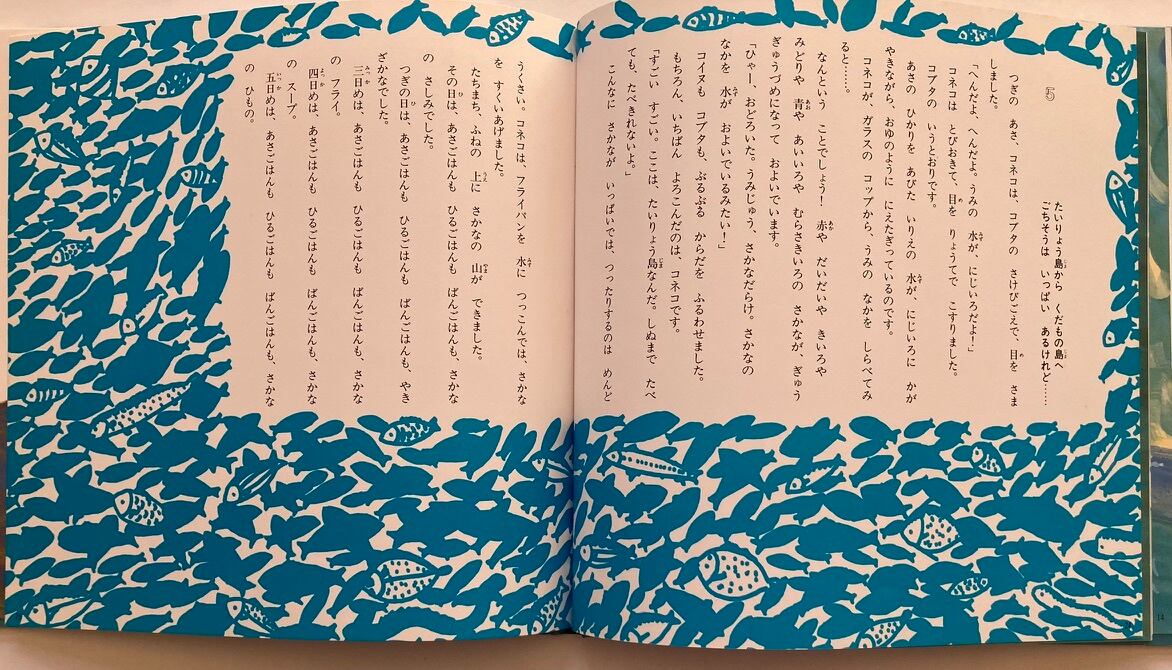 5
たいりょう島から くだもの島へ
ごちそうは いっぱい あるけれど……
つぎの あさ、コネコは、コブタの さけびごえで、目を さま
しました。
「へんだよ、へんだよ。うみの 水が、にじいろだよ!」
コネコは とびおきて、目を りょうてで こすりました。
コブタの いうとおりです。
あさの ひかりを あびた いりえの 水が、にじいろに かが
やきながら、おゆのように にえたぎっているのです。
コネコが、ガラスの コップから、うみの なかを しらべてみ
ると……。
なんという ことでしょう! 赤や だいだいや きいろや
みどりや 青や あいいろや むらさきいろの さかなが、ぎゅう
ぎゅうづめになって およいでいます。
「ひゃー、おどろいた。うみじゅう、さかなだらけ。さかなの
なかを 水が およいでいるみたい!」
コイヌも コブタも、ぶるぶる からだを ふるわせました。
もちろん、いちばん よろこんだのは、コネコです。
「すごい すごい。ここは、たいりょう島なんだ。しぬまで たべ
ても、たべきれないよ。」
こんなに さかなが いっぱいでは、つったりするのは めんど
うくさい。コネコは、フライパンを 水に つっこんでは、さかな
を すくいあげました。
たちまち、ふねの 上に さかなの 山が できました。
その日は、あさごはんも ひるごはんも ばんごはんも、さかな
の さしみでした。
つぎの日は、あさごはんも ひるごはんも ばんごはんも、やき
ざかなでした。
三日めは、あさごはんも ひるごはんも ばんごはんも、さかな
の フライ。
四日めは、あさごはんも ひるごはんも ばんごはんも、さかな
の スープ。
五日めは、あさごはんも ひるごはんも ばんごはんも、さかな
の ひもの。
14